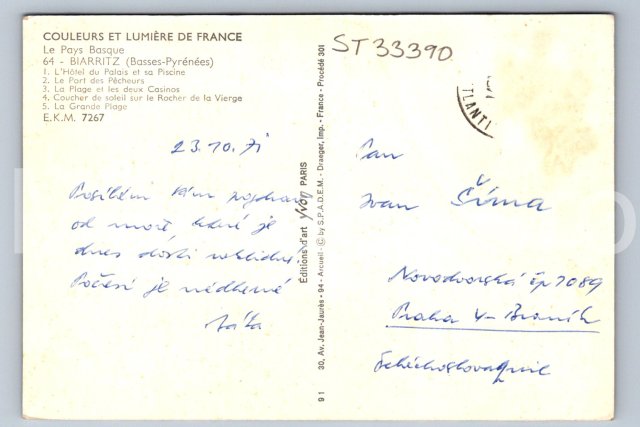 COULEURS ET LUMIÈRE DE FRANCE
Le Pays Basque
64 - BIARRITZ (Basses-Pyrénées)
1. L'Hôtel du Palais et sa Piscine
2. Le Port des Pêcheurs
3. La Plage et les deux Casinos
4. Coucher de soleil sur le Rocher de la Vierge
5. La Grande Plage
E.K.M. 7267
23.10.71
Posílám Vám pozdrav
od moře, které je
dnes dosti
Počasí je nádherné
Éditions d'art yvon PARIS
30, Av. Jean-Jaurès - 94 - Arcueil - © by S.P.A.D.E.M. - Draeger, Imp. - France - Procédé 301
91
ST 33390
TLANTI
Pan
Ivan Šíma
Novodvorská čp 1089
Praha 4 - Braník
Tchécoslovaquie